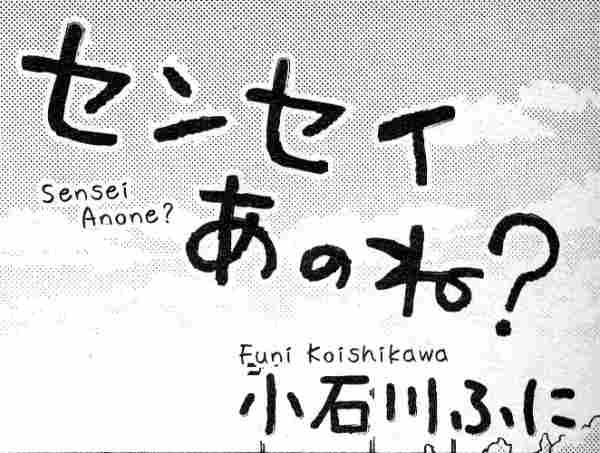 センセイ
Sensei
Anone?
あのね?
Funi Koishikawa
小石川ふに